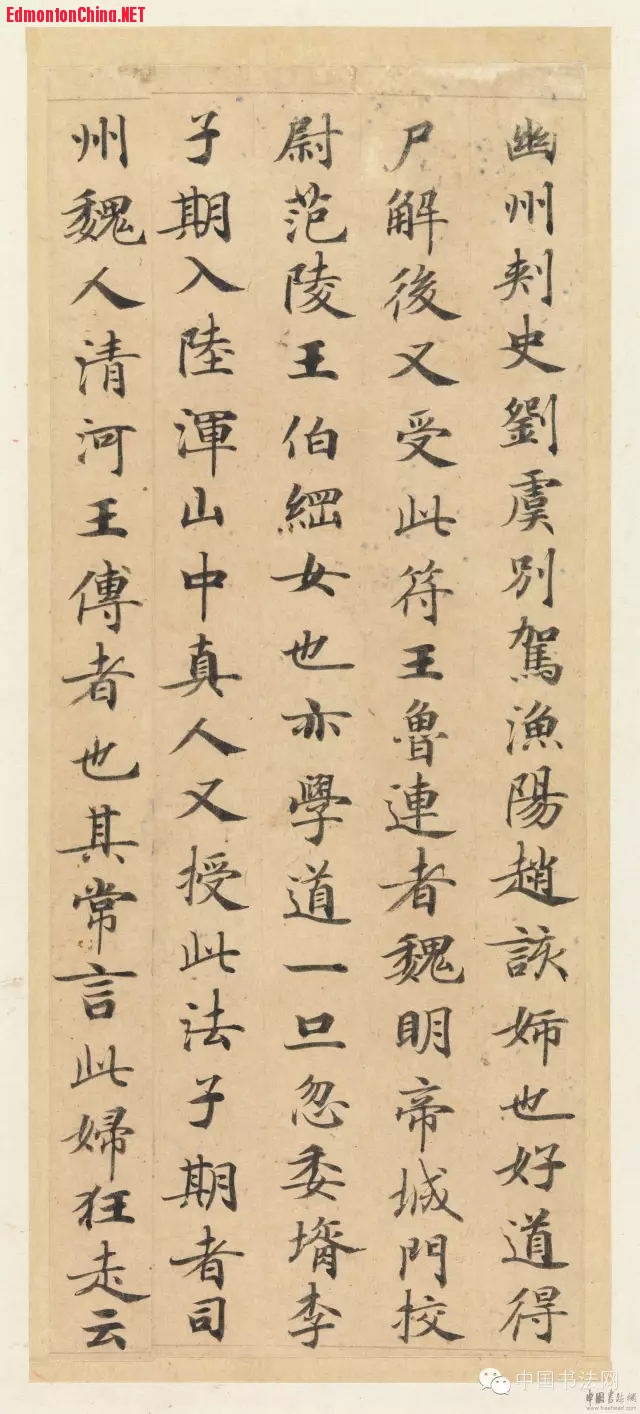 EdmontonChina.NET
幽州刾史劉虞別駕漁陽趙該姉也好道得
尸解後又受此符王魯連者魏明帝城門挍
尉范陵王伯綑女也亦學道一旦忽委壻李
子期入陸渾山中真人又授此法子期者司
州魏人清河王傅者也其常言此婦狂走云
中国书法网
中國書法網